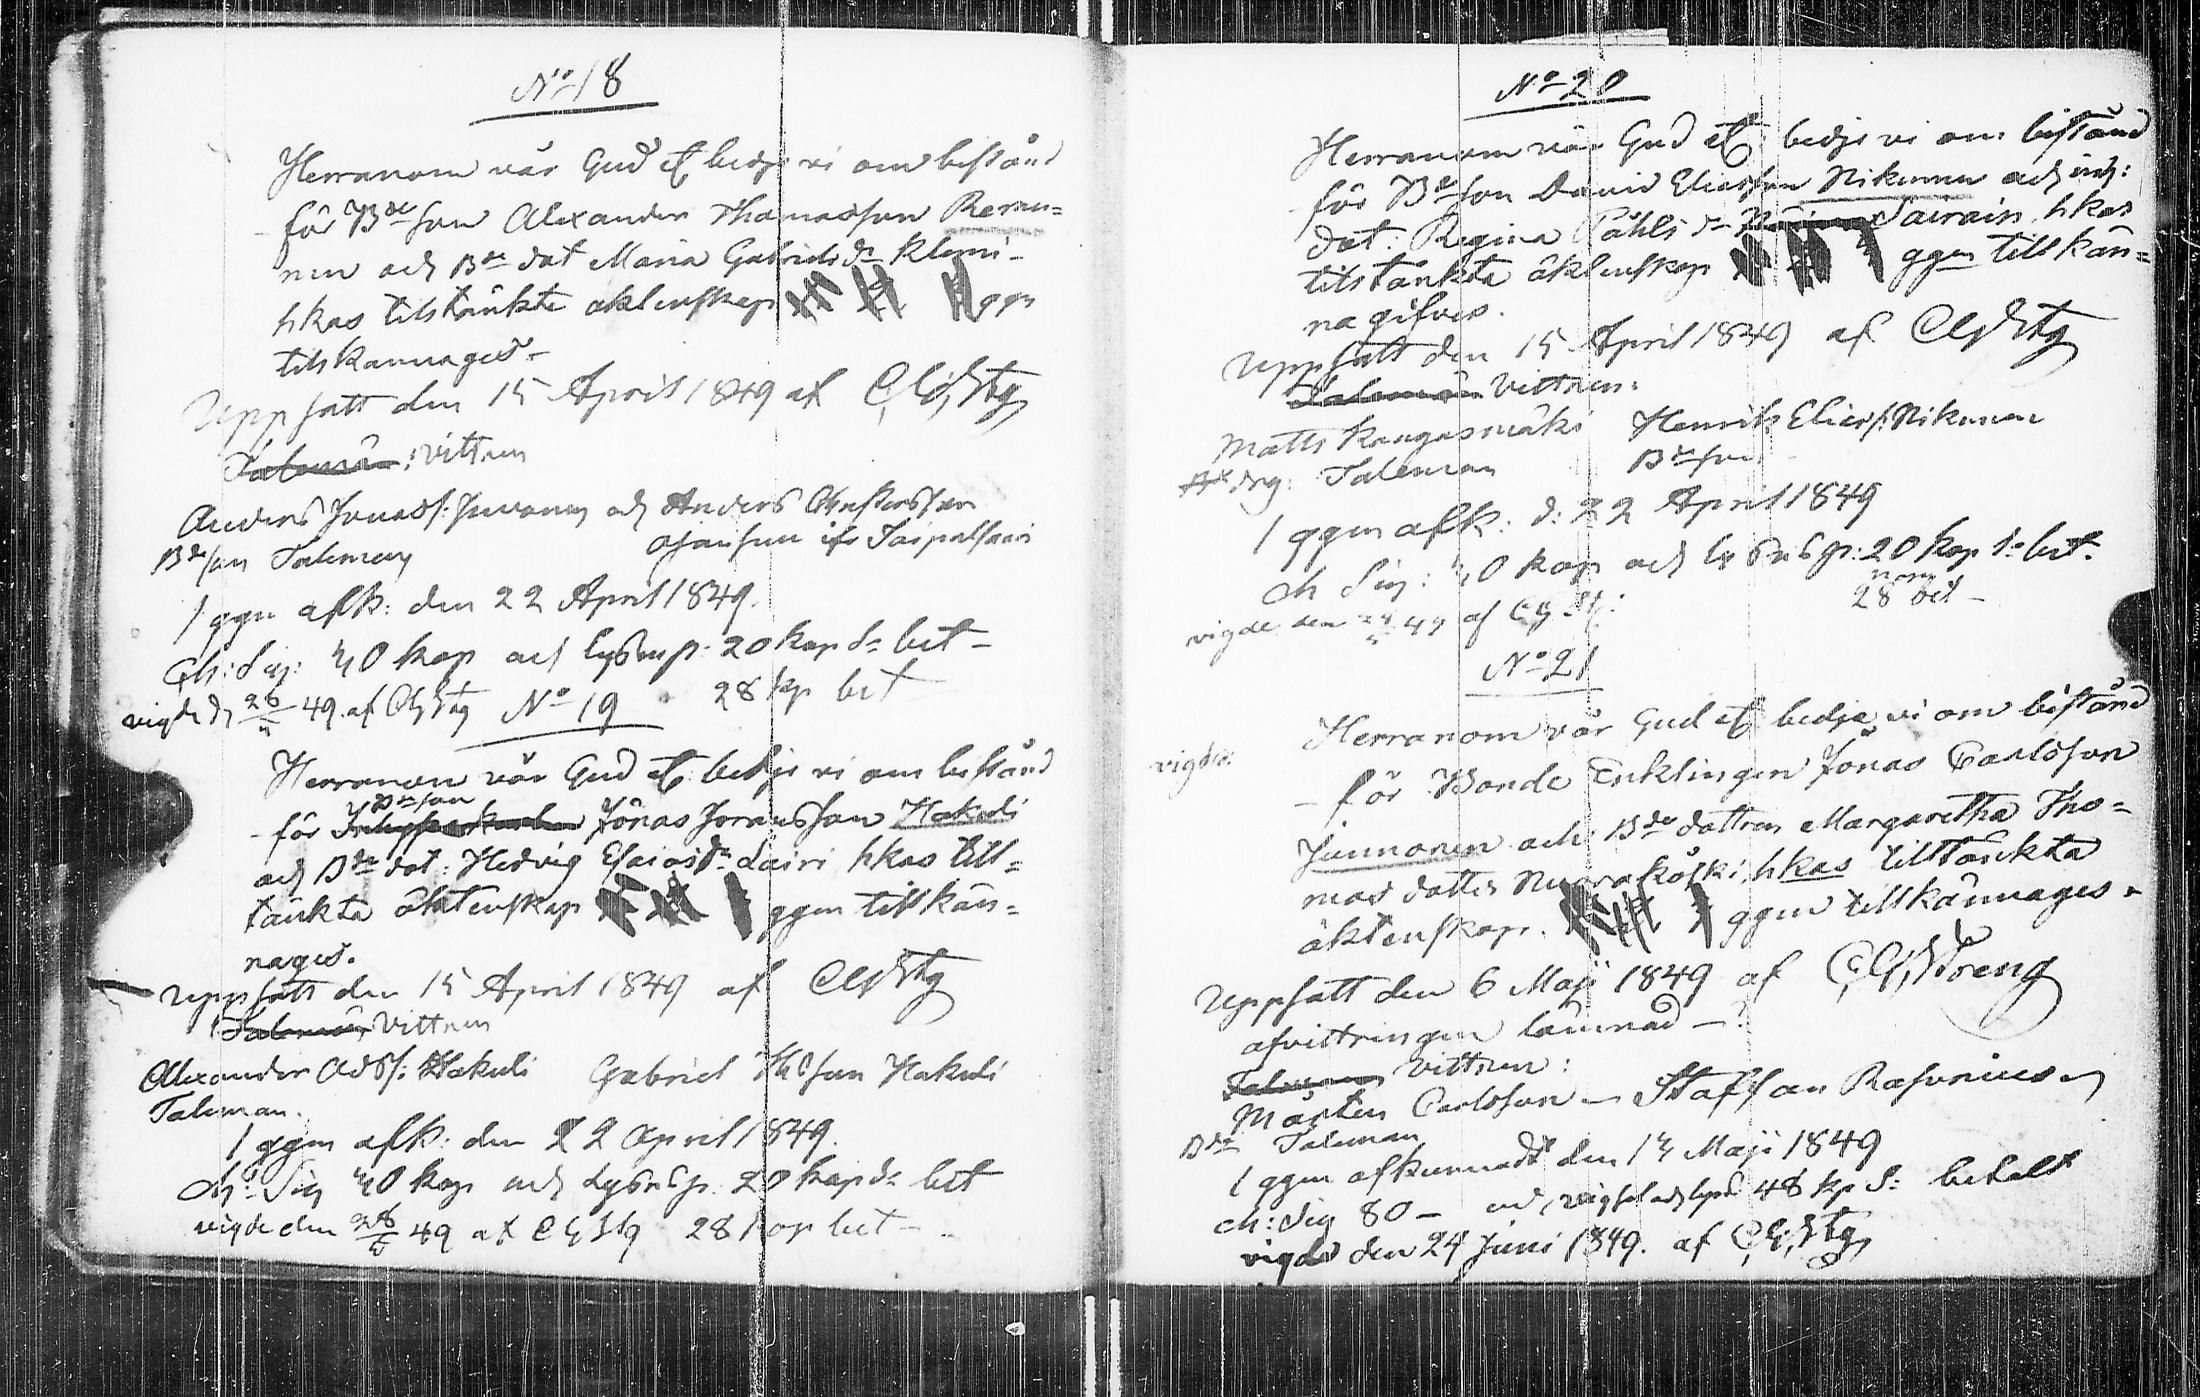 No 18
Herranom vår Gud etc bedje vi om bistånd
- för Bde son Alexander Thomasson Reron=
nen och Bde dot Maria Gabriels dr Klemi-
hkas tilltänkte äktenskap ggn
tillkännages -
Uppsatt den 15 April 1849 af C,G,Stg
Taleman: Vittnen
Anders Jonass: Juvonen och Anders Christersson
Bde son Taleman Ojansuu ifr Taipalsaari
1 ggn aflk: den 22 April 1849.
Ch: Sig: 40 kop och lysnp: 20 kop Sr bet -
vigde d 28/5 49. af CGStg 28 kp bet
No 19
Herranom vår Gud etc bedje vi om bistånd
Bde son
- för Jönas Joransson Hakuli
och Bde dot: Hedvig Esaias dr Lairi hkas till=
tänkta äktenskap ggen tillkän=
nages.
Uppsatt den 15 April 1849 af CGStg
Taleman Vittnen
Alexander Ads: Hakuli Gabriel Thsson Hakuli
Taleman.
1 ggn aflk: den 22 April 1849.
Ch: Sig 40 kop och lysnp: 20 kop Sr bet
vigde den 28/5 49 af CGStg 28 kop bet -
No 20
Herranom vår Gud etc bedje vi om bistånd
- för Bde son David Eliasson Nikunen och
dot: Regina Påhls dr Sairain hkas
tilltänkta äktenskap ggen tillkän=
nagifves.
Uppsatt den 15 April 1849 af CGStg
Taleman Vittnen:
Matts Kangasmäki Henrik Elias: Nikunen
drg: Taleman Bde son
1 ggen aflk: d: 22 April 1849
Ch Sig: 40 kop och lysnp: 20 kop Sr bet.
28 bet -
vigde den 28/5 49 af CGSt:
No 21
Herranom vår Gud etc bedja vi om bistånd
vigde:
- för Bonde Enklingen Jönas Carlsson
Junnonen och Bde dottren Margaretha Tho=
mas dotter hkas tilltänkta
äktenskap. ggen tillkännages.
Uppsatt den 6 Maji 1849 af C,G,Streng
afvittringen lämnad -
Taleman Vittnen:
Mårten Carlsson - Staffan
Bde Taleman
1 ggen afkunnadt den 14 Maji 1849
Ch: Sig 80 - och vigsel och lysn 48 kp S: betalt
vigde den 24 Juni 1849. af C,G,Stg